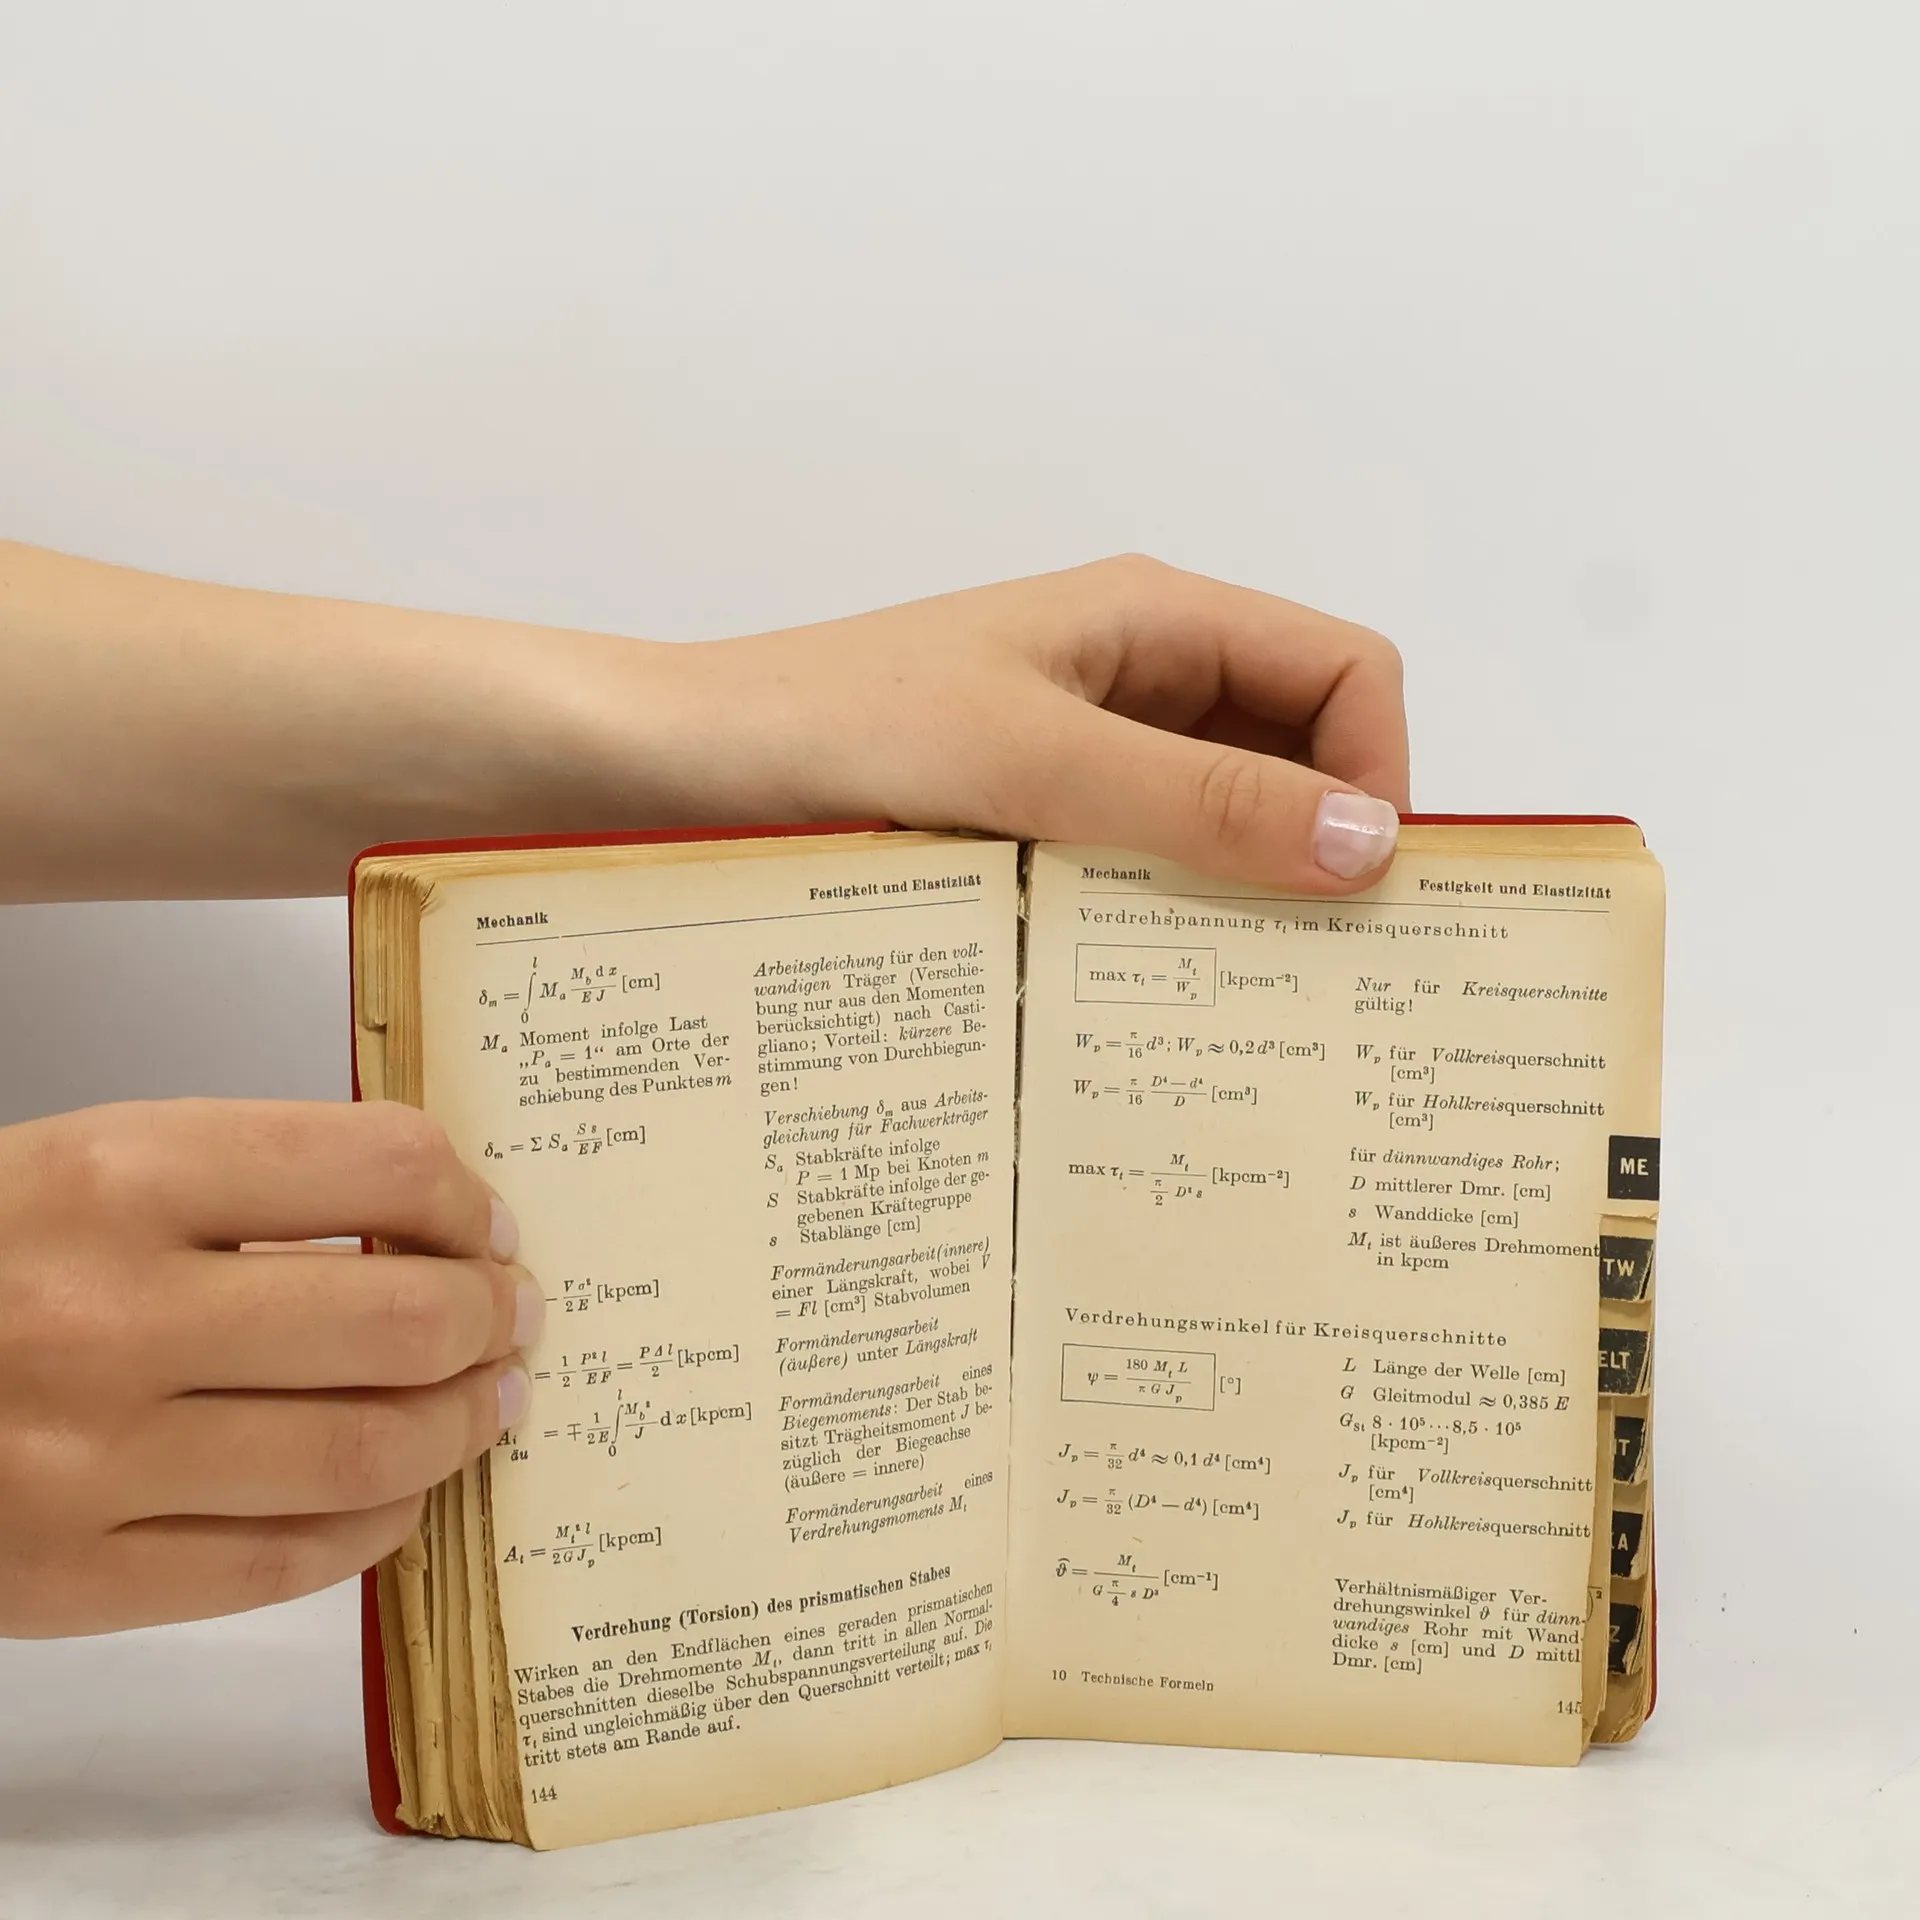 Mechanik Festigkeit und Elastizität
δₘ = ∫₀ˡ Mₐ M_b dx / E J [cm]
Mₐ Moment infolge Last
„Pₐ = 1“ am Orte der
zu bestimmenden Ver-
schiebung des Punktes m
Arbeitsgleichung für den voll-
wandigen Träger (Verschie-
bung nur aus den Momenten
berücksichtigt) nach Casti-
gliano; Vorteil: kürzere Be-
stimmung von Durchbiegun-
gen!
δₘ = Σ Sₐ S s / E F [cm]
Verschiebung δₘ aus Arbeits-
gleichung für Fachwerkträger
Sₐ Stabkräfte infolge
P = 1 Mp bei Knoten m
S Stabkräfte infolge der ge-
gebenen Kräftegruppe
s Stablänge [cm]
V σ² / 2 E [kpcm]
Formänderungsarbeit (innere)
einer Längskraft, wobei V
= Fl [cm³] Stabvolumen
= 1/2 P² l / E F = P Δ l / 2 [kpcm]
Formänderungsarbeit
(äußere) unter Längskraft
A i äu = ∓ 1 / 2 E ∫₀ˡ M_b² / J d x [kpcm]
Formänderungsarbeit eines
Biegemoments: Der Stab be-
sitzt Trägheitsmoment J be-
züglich der Biegeachse
(äußere = innere)
Aₜ = Mₜ² l / 2 G Jₚ [kpcm]
Formänderungsarbeit eines
Verdrehungsmoments Mₜ
Verdrehung (Torsion) des prismatischen Stabes
Wirken an den Endflächen eines geraden prismatischen
Stabes die Drehmomente Mₜ, dann tritt in allen Normal-
querschnitten dieselbe Schubspannungsverteilung auf. Die
τₜ sind ungleichmäßig über den Querschnitt verteilt; max τₜ
tritt stets am Rande auf.
144
Mechanik Festigkeit und Elastizität
Verdrehspannung τₜ im Kreisquerschnitt
max τₜ = Mₜ / Wₚ [kpcm⁻²]
Nur für Kreisquerschnitte
gültig!
Wₚ = π/16 d³; Wₚ ≈ 0,2 d³ [cm³]
Wₚ für Vollkreisquerschnitt
[cm³]
Wₚ = π/16 D⁴ — d⁴ / D [cm³]
Wₚ für Hohlkreisquerschnitt
[cm³]
max τₜ = Mₜ / π/2 D² s [kpcm⁻²]
für dünnwandiges Rohr;
D mittlerer Dmr. [cm]
s Wanddicke [cm]
Mₜ ist äußeres Drehmoment
in kpcm
Verdrehungswinkel für Kreisquerschnitte
ψ = 180 Mₜ L / π G Jₚ [°]
L Länge der Welle [cm]
G Gleitmodul ≈ 0,385 E
G_St 8 · 10⁵...8,5 · 10⁵
[kpcm⁻²]
Jₚ = π/32 d⁴ ≈ 0,1 d⁴ [cm⁴]
Jₚ für Vollkreisquerschnitt
[cm⁴]
Jₚ = π/32 (D⁴ — d⁴) [cm⁴]
Jₚ für Hohlkreisquerschnitt
ϑ̂ = Mₜ / G π/4 s D³ [cm⁻¹]
Verhältnismäßiger Ver-
drehungswinkel ϑ für dünn-
wandiges Rohr mit Wand-
dicke s [cm] und D mittl
Dmr. [cm]
10 Technische Formeln
145
ME
TW
ELT